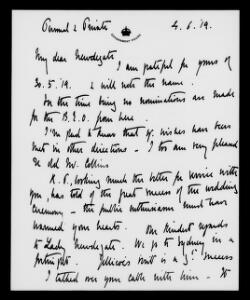 Personal & Private 4.6.19.
GOVERNMENT HOUSE
My dear Newdegate
I am grateful for yours of
30.5.19. I will note the name.
For the time being no nominations are made
for the B.E.O. from here.
I'm glad to hear that yr. wishes have been
met in other directions – I too am very pleased
old Mr. Collins
looking much the better for service with
you, has told of the great success of the wedding
ceremony – the public enthusiasm must have
warmed your hearts. Our kindest regards
to Lady Newdegate. We go to Sydney in a
fortnight. Jellicoe's visit is a success
I talked over your cable with him –